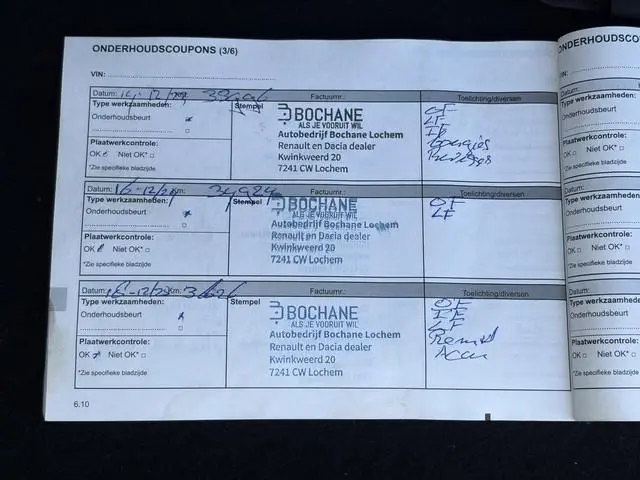 ONDERHOUDSCOUPONS (3/6)
VIN:
Datum: Factuurnr.: Toelichting/diversen
Type werkzaamheden: Stempel
Onderhoudsbeurt
BOCHANE
ALS JE VOORUIT WIL
Autobedrijf Bochane Lochem
Renault en Dacia dealer
Kwinkweerd 20
7241 CW Lochem
OF
LF
IF
Plaatwerkcontrole:
OK Niet OK*
*Zie specifieke bladzijde
Datum: Factuurnr.: Toelichting/diversen
Type werkzaamheden: Stempel
Onderhoudsbeurt
BOCHANE
ALS JE VOORUIT WIL
Autobedrijf Bochane Lochem
Renault en Dacia dealer
Kwinkweerd 20
7241 CW Lochem
OF
LF
Plaatwerkcontrole:
OK Niet OK*
*Zie specifieke bladzijde
Datum: Km: Factuurnr.: Toelichting/diversen
Type werkzaamheden: Stempel
Onderhoudsbeurt
BOCHANE
ALS JE VOORUIT WIL
Autobedrijf Bochane Lochem
Renault en Dacia dealer
Kwinkweerd 20
7241 CW Lochem
OF
IF
LF
Accu
Plaatwerkcontrole:
OK Niet OK*
*Zie specifieke bladzijde
6.10
ONDERHOUDSCO
VIN:
Datum:
Type werkzaamheden:
Onderhoudsbeurt
Plaatwerkcontrole:
OK Niet OK*
*Zie specifieke bladzijde
Datum:
Type werkzaamheden:
Onderhoudsbeurt
Plaatwerkcontrole:
OK Niet OK*
*Zie specifieke bladzijde
Datum:
Type werkzaamheden:
Onderhoudsbeurt
Plaatwerkcontrole:
OK Niet OK*
*Zie specifieke bladzijde